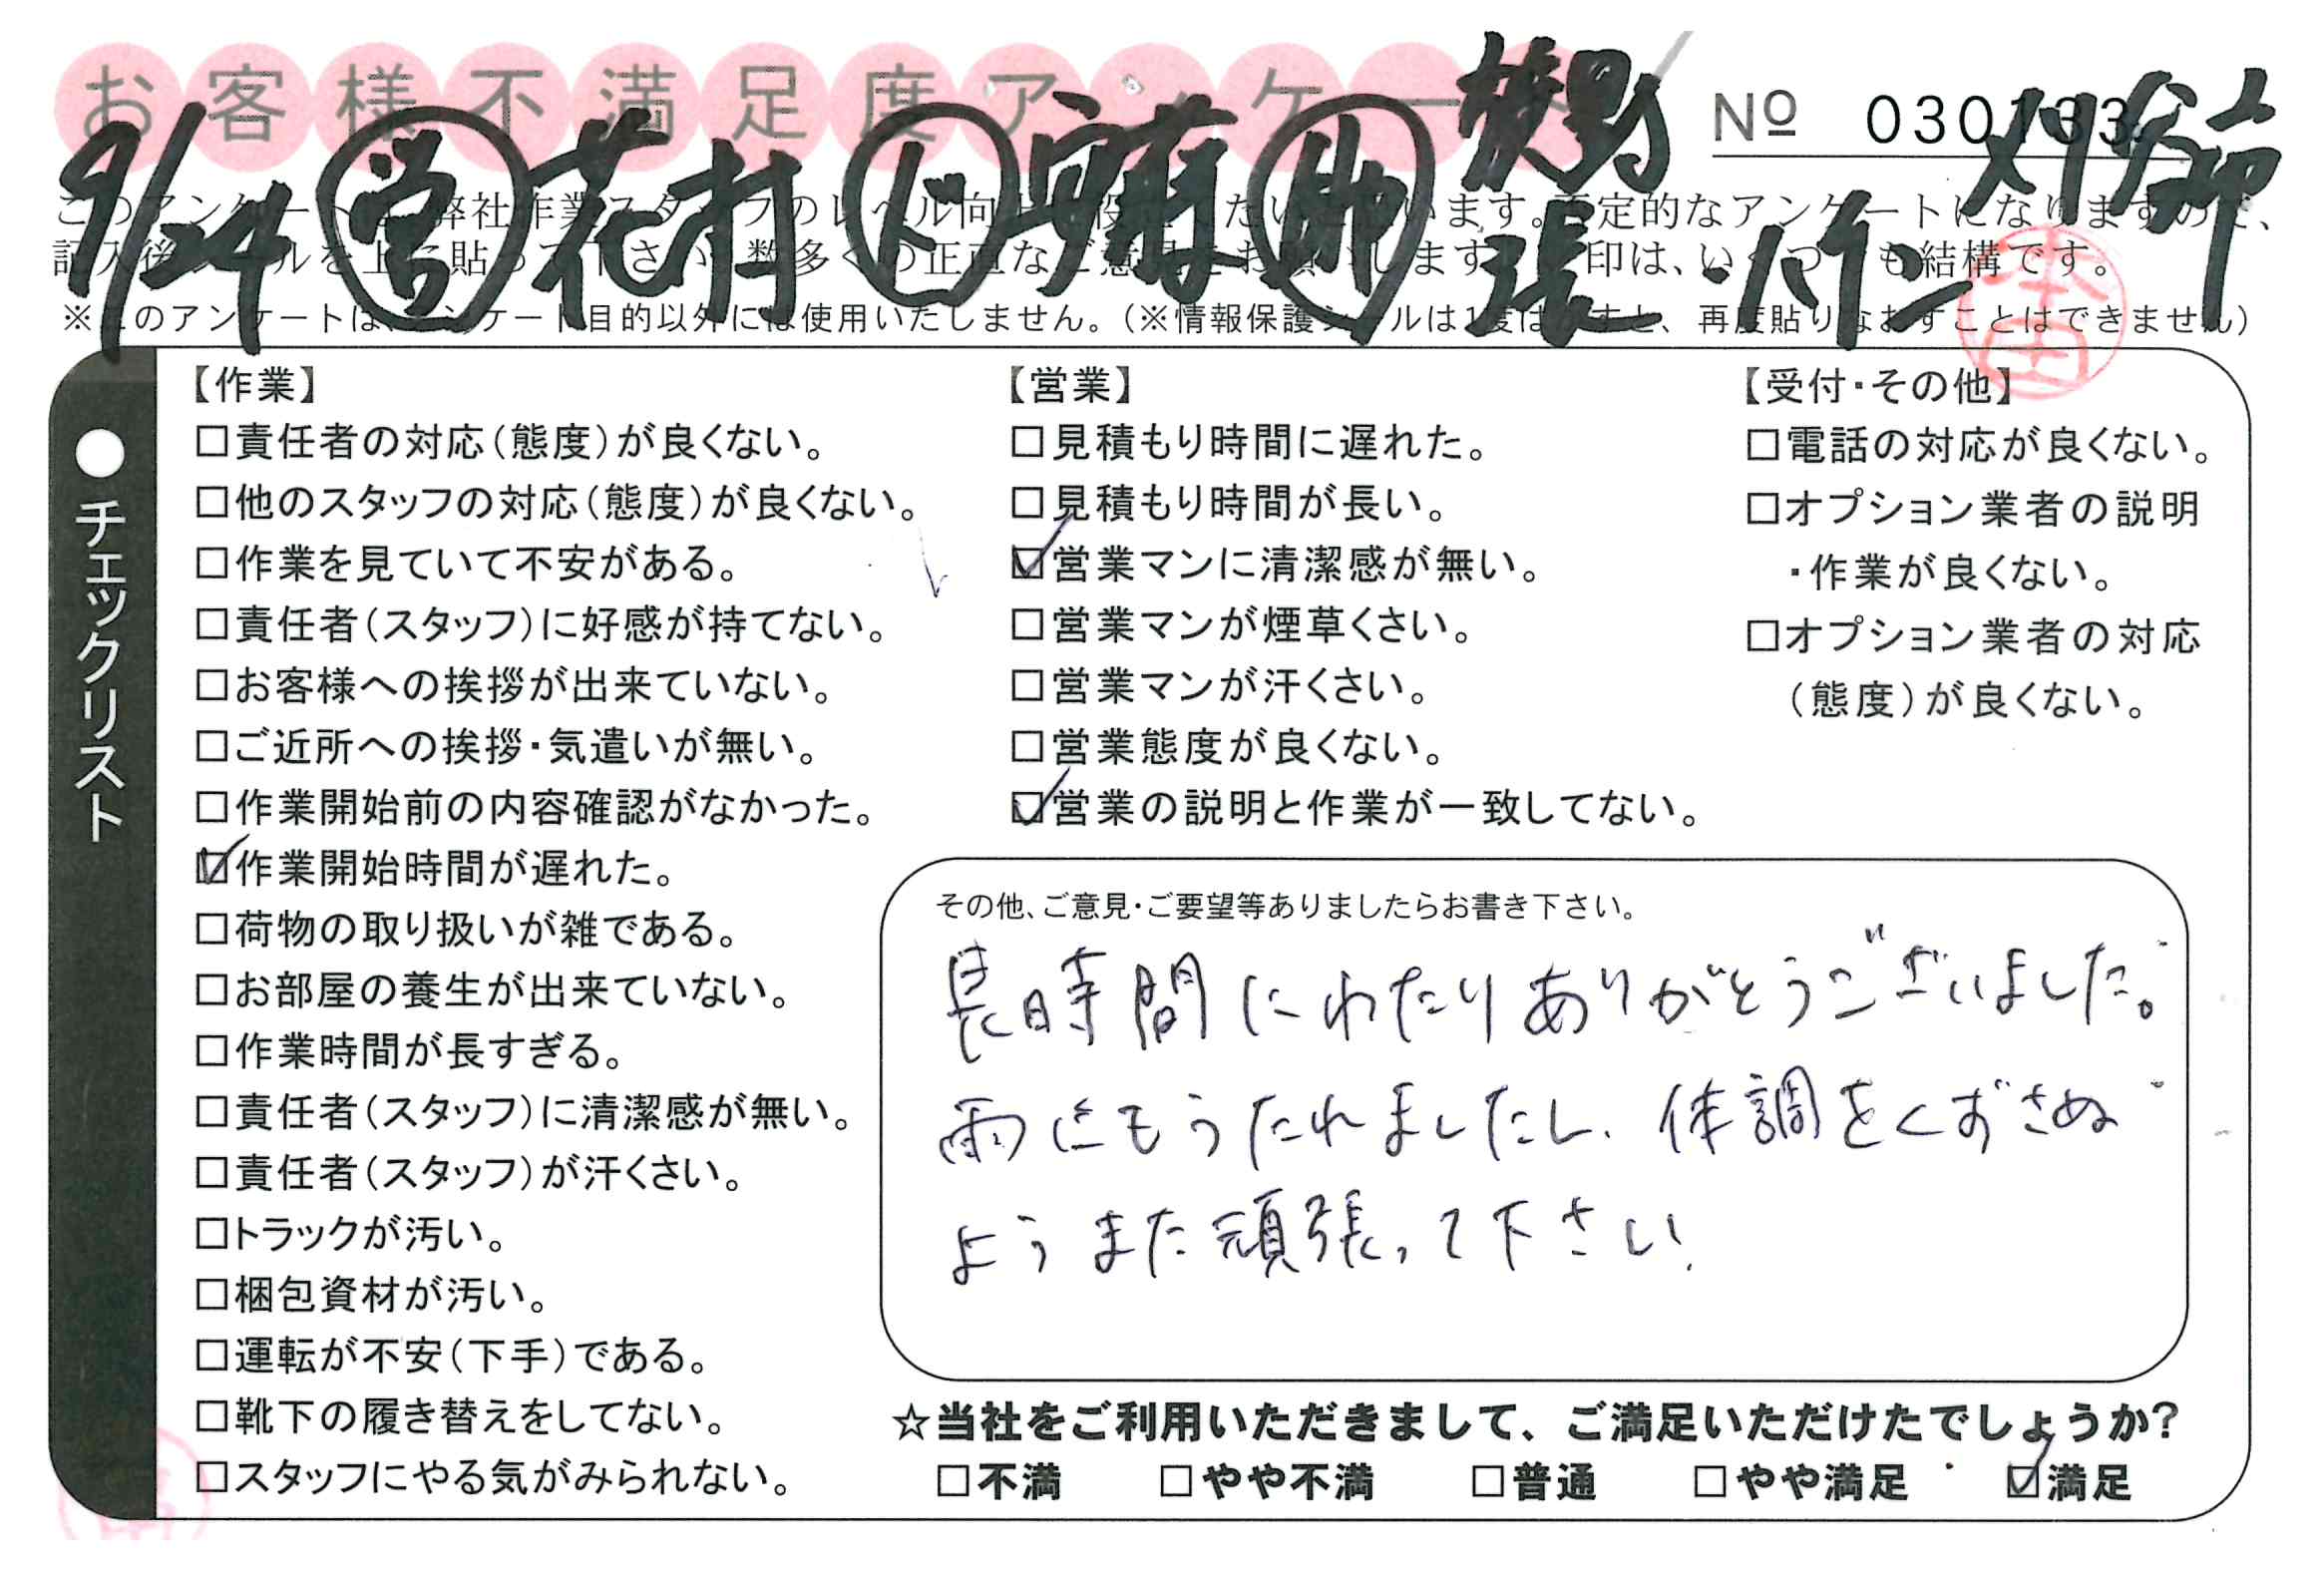 お客様不満足度アンケート
№ 030133
9/24 営 花村 ド 安藤 助 萩野 張・八仁 刈谷
このアンケートは、弊社作業スタッフのレベル向上に役立てたいと思います。否定的なアンケートになりますので、
記入後シールを上に貼って下さい。数多くの正直なご意見をお願いします。✓印は、いくつでも結構です。
※このアンケートは、アンケート目的以外には使用いたしません。(※情報保護シールは1度はがすと、再度貼りなおすことはできません)
本田
●チェックリスト
【作業】
□責任者の対応(態度)が良くない。
□他のスタッフの対応(態度)が良くない。
□作業を見ていて不安がある。
□責任者(スタッフ)に好感が持てない。
□お客様への挨拶が出来ていない。
□ご近所への挨拶・気遣いが無い。
□作業開始前の内容確認がなかった。
☑作業開始時間が遅れた。
□荷物の取り扱いが雑である。
□お部屋の養生が出来ていない。
□作業時間が長すぎる。
□責任者(スタッフ)に清潔感が無い。
□責任者(スタッフ)が汗くさい。
□トラックが汚い。
□梱包資材が汚い。
□運転が不安(下手)である。
□靴下の履き替えをしてない。
□スタッフにやる気がみられない。
【営業】
□見積もり時間に遅れた。
□見積もり時間が長い。
☑営業マンに清潔感が無い。
□営業マンが煙草くさい。
□営業マンが汗くさい。
□営業態度が良くない。
☑営業の説明と作業が一致してない。
【受付・その他】
□電話の対応が良くない。
□オプション業者の説明
・作業が良くない。
□オプション業者の対応
(態度)が良くない。
その他、ご意見・ご要望等ありましたらお書き下さい。
長時間にわたりありがとうございました。
雨にもうたれましたし、体調をくずさぬ
ようまた頑張って下さい.
☆当社をご利用いただきまして、ご満足いただけたでしょうか?
□不満 □やや不満 □普通 □やや満足 ☑満足